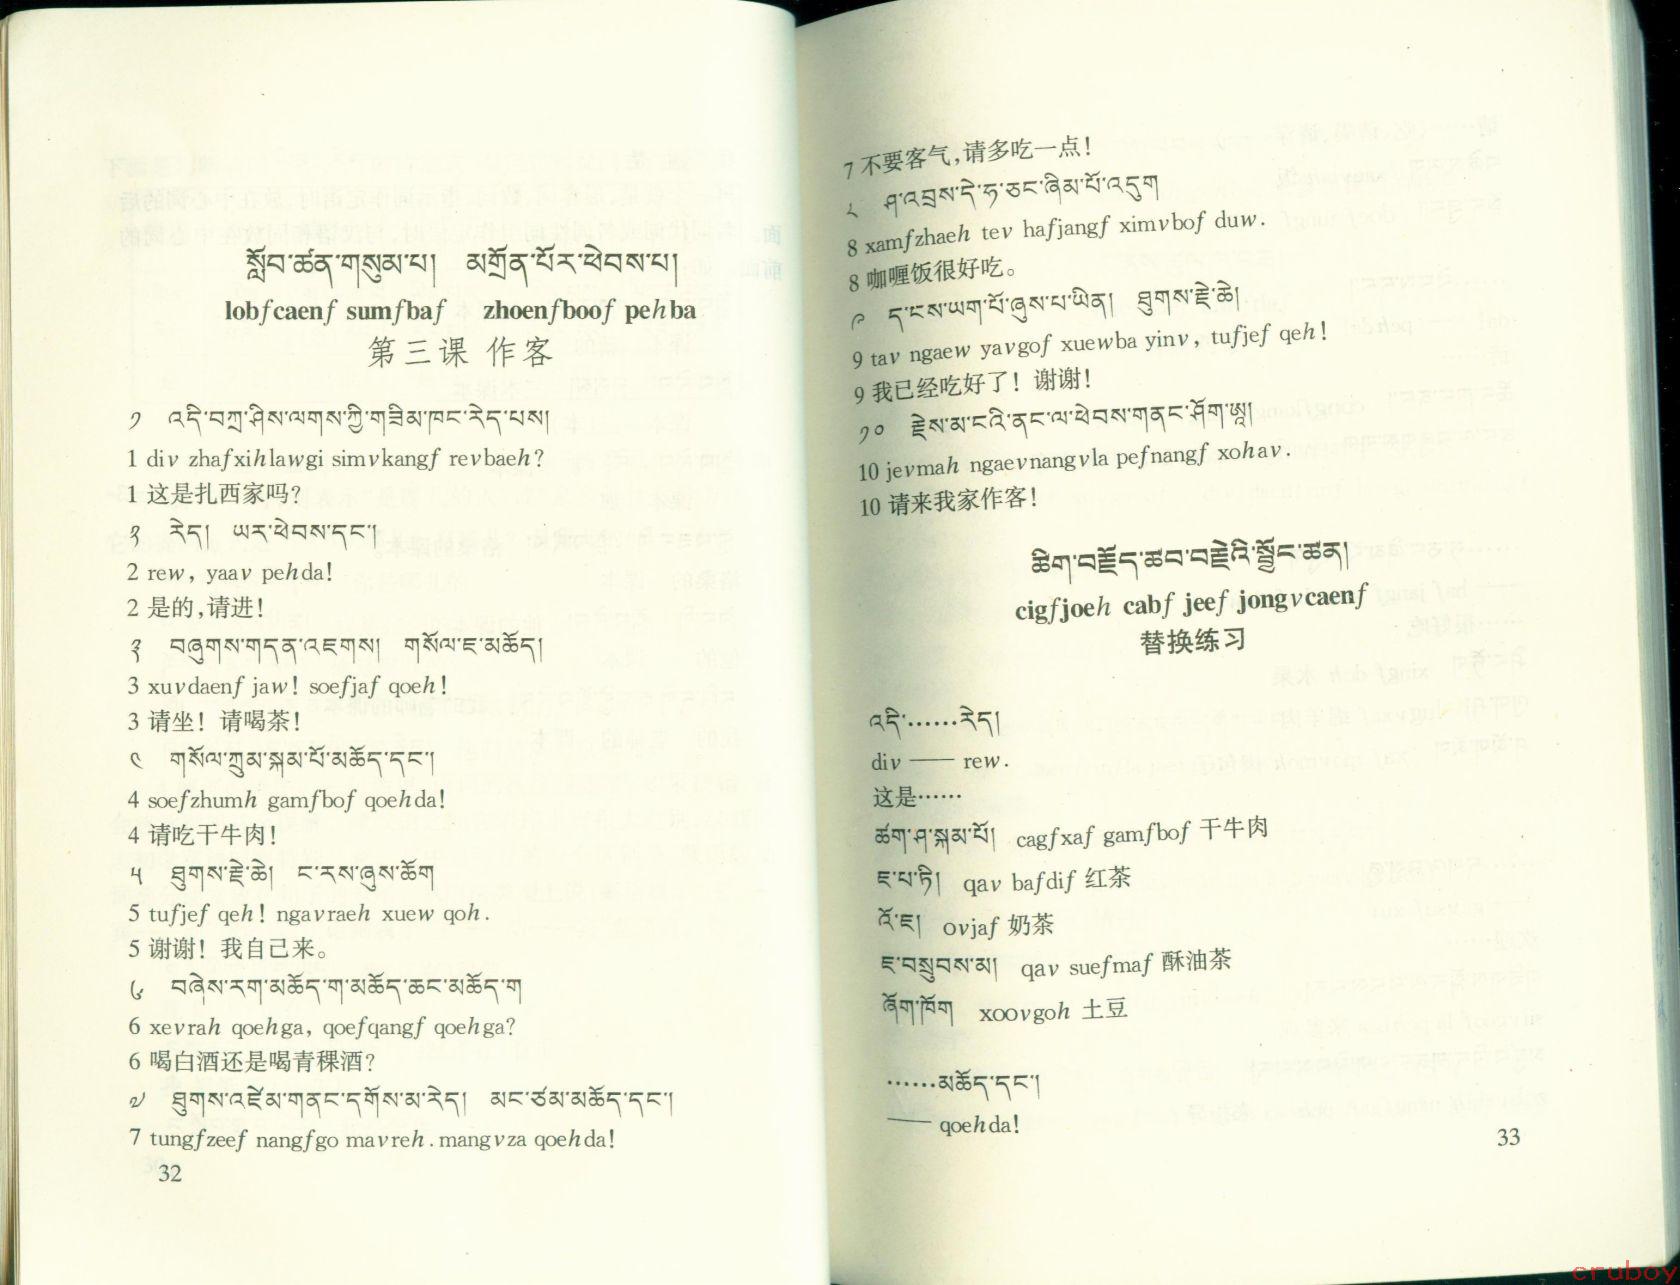 སློབ་ཚན་གསུམ་པ།  མགྲོན་པོར་ཕེབས་པ།
lobfcaenf sumfbaf  zhoenfboof pehba
第三课 作客
༡ འདི་བཀྲ་ཤིས་ལགས་ཀྱི་གཟིམ་ཁང་རེད་པས།
1 div zhafxihlawgi simvkangf revbaeh?
1 这是扎西家吗?
༢ རེད།  ཡར་ཕེབས་དང་།
2 rew, yaav pehda!
2 是的,请进!
༣ བཞུགས་གདན་འཇགས།  གསོལ་ཇ་མཆོད།
3 xuvdaenf jaw! soefjaf qoeh!
3 请坐! 请喝茶!
༤ གསོལ་ཀྲུམ་སྐམ་པོ་མཆོད་དང་།
4 soefzhumh gamfbof qoehda!
4 请吃干牛肉!
༥ ཐུགས་རྗེ་ཆེ།  ང་རས་ཞུས་ཆོག
5 tufjef qeh! ngavraeh xuew qoh.
5 谢谢! 我自己来。
༦ བཞེས་རག་མཆོད་ག་མཆོད་ཆང་མཆོད་ག
6 xevrah qoehga, qoefqangf qoehga?
6 喝白酒还是喝青稞酒?
༧ ཐུགས་འཛེམ་གནང་དགོས་མ་རེད།  མང་ཙམ་མཆོད་དང་།
7 tungfzeef nangfgo mavreh. mangvza qoehda!
32
7 不要客气,请多吃一点!
༨ ཤ་འབྲས་དེ་ཧ་ཅང་ཞིམ་པོ་འདུག
8 xamfzhaeh tev hafjangf ximvbof duw.
8 咖喱饭很好吃。
༩ ད་ངས་ཡག་པོ་ཞུས་པ་ཡིན།  ཐུགས་རྗེ་ཆེ།
9 tav ngaew yavgof xuewba yinv, tufjef qeh!
9 我已经吃好了! 谢谢!
༡༠ རྗེས་མ་ངའི་ནང་ལ་ཕེབས་གནང་ཤོག་ཨཱ།
10 jevmah ngaevnangvla pefnangf xohav.
10 请来我家作客!
ཚིག་བརྗོད་ཚབ་བརྗེའི་སྦྱོང་ཚན།
cigfjoeh cabf jeef jongvcaenf
替换练习
འདི་……རེད།
div —— rew.
这是……
ཚག་ཤ་སྐམ་པོ།  cagfxaf gamfbof 干牛肉
ཇ་པ་ཏི།  qav bafdif 红茶
འོ་ཇ།  ovjaf 奶茶
ཇ་བསྲུབས་མ།  qav suefmaf 酥油茶
ཞོག་ཁོག  xoovgoh 土豆
……མཆོད་དང་།
—— qoehda!
33
cruboy